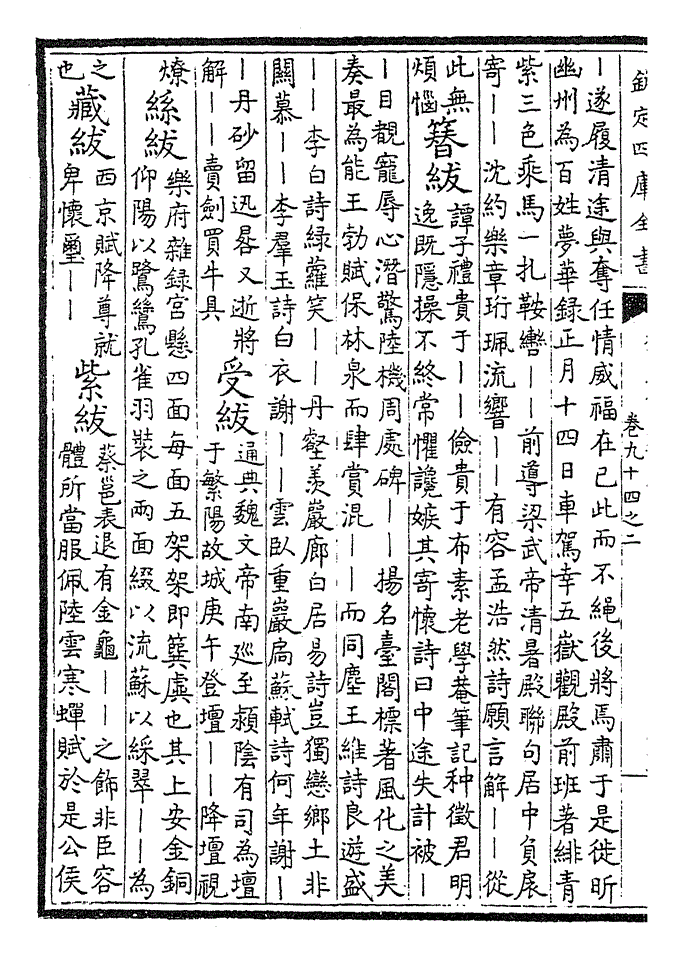 欽定四庫全書
卷九十四之二
丨遂履清途與奪任情威福在已此而不繩後將焉肅于是徙昕
幽州為百姓夢華錄正月十四日車駕幸五嶽觀殿前班著緋青
紫三色乘馬一扎鞍轡丨丨前導梁武帝清暑殿聯句居中負扆
寄丨丨沈約樂章珩珮流響丨丨有容孟浩然詩願言解丨丨從
此無
煩惱
簪紱
譚子禮貴于丨丨儉貴于布素老學菴筆記种徵君明
逸既隱操不終常懼讒嫉其寄懷詩曰中途失計被丨
丨目覩寵辱心潛驚陸機周處碑丨丨揚名臺閣標著風化之美
奏最為能王勃賦保林泉而肆賞混丨丨而同塵王維詩良遊盛
丨丨李白詩綠蘿笑丨丨丹壑羨巖廊白居易詩豈獨戀鄉土非
關慕丨丨李羣玉詩白衣謝丨丨雲臥重巖扃蘇軾詩何年謝丨
丨丹砂留迅晷又逝將
解丨丨賣劍買牛具
受紱
通典魏文帝南廵至潁陰有司為壇
于繁陽故城庚午登壇丨丨降壇視
燎
絲紱
樂府雜錄宮懸四面每面五架架即簨虡也其上安金銅
仰陽以鷺鷥孔雀羽裝之兩面綴以流蘇以綵翠丨丨為
之
也
藏紱
西京賦降尊就
卑懷璽丨丨
紫紱
蔡邕表退有金龜丨丨之飾非臣容
體所當服佩陸雲寒蟬賦於是公侯